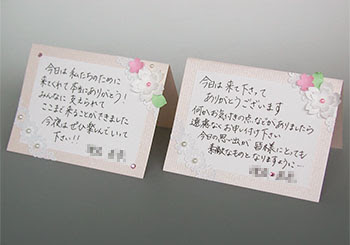 今日は私たちのために
来てくれて本当にありがとう!
みんなに支えられて
ここまで来ることができました
今夜はぜひ楽しんでいって
下さい!!
今日は来て下さって
ありがとうございます
何かお気付きの点などがありましたら
遠慮なくお申し付け下さい
今日の思い出が皆様にとっても
素敵なものとなりますように…